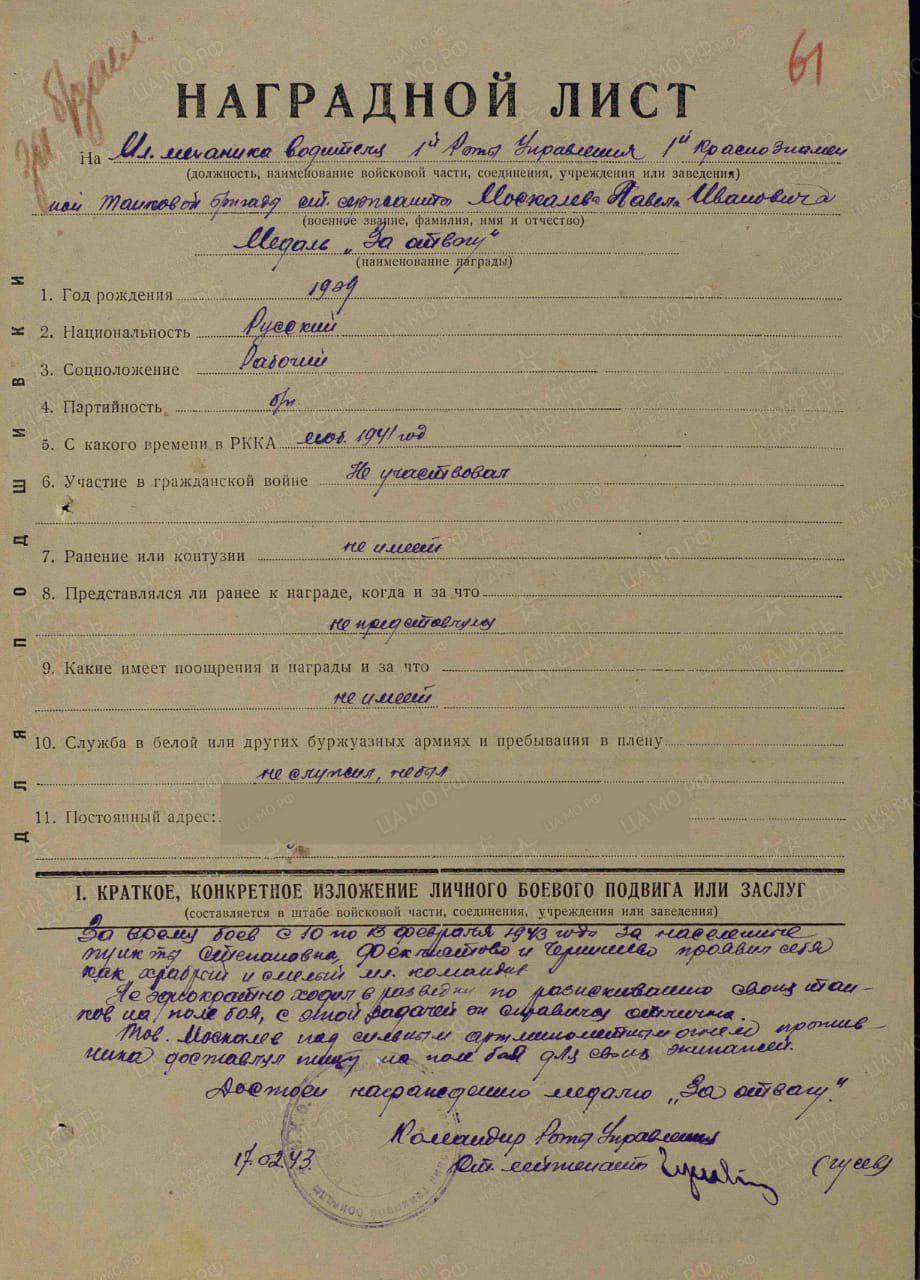 за б/заел.
61
НАГРАДНОЙ ЛИСТ
На Мл. механика водителя 1й Роты Управления 1й Краснознамен
(должность, наименование войсковой части, соединения, учреждения или заведения)
ной танковой бригады ст. сержанта Москалева Павла Ивановича
(военное звание, фамилия, имя и отчество)
Медаль „За отвагу"
(наименование награды)
1. Год рождения 1909
2. Национальность Русский
3. Соцположение Рабочий
4. Партийность б/п
5. С какого времени в РККА 1941 год
6. Участие в гражданской войне Не участвовал
7. Ранение или контузии не имеет
8. Представлялся ли ранее к награде, когда и за что
не представлялся
9. Какие имеет поощрения и награды и за что
не имеет
10. Служба в белой или других буржуазных армиях и пребывания в плену
не служил, не был
11. Постоянный адрес:
ДЛЯ ПОДШИВКИ
I. КРАТКОЕ, КОНКРЕТНОЕ ИЗЛОЖЕНИЕ ЛИЧНОГО БОЕВОГО ПОДВИГА ИЛИ ЗАСЛУГ
(составляется в штабе войсковой части, соединения, учреждения или заведения)
За время боев с 10 по 13 февраля 1943 года За населенные
пункты Степановка, и проявил себя
как храбрый и смелый мл. командир
Не однократно ходил в разведки по разискиванию своих тан-
ков на поле боя, с этой задачей он справился отлична.
Тов. Москалев под сильным артминометным огнем против-
ника доставлял пищу на поле боя для своих экипажей.
Достоен награждению медалю „За отвагу".
Командир Роты Управления
17.02.43. Ст. лейтенант (Гусев)